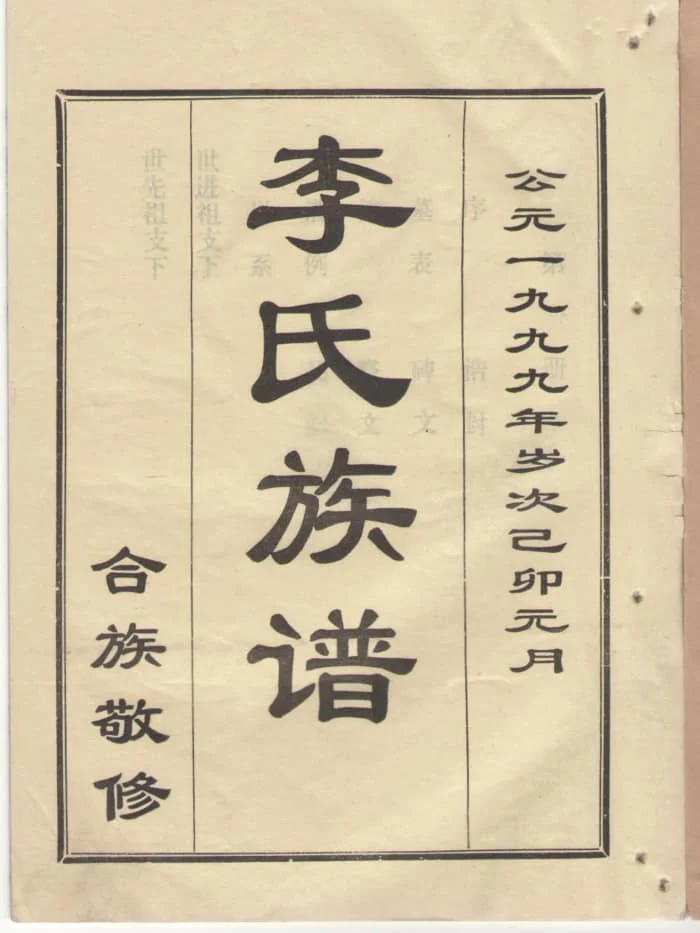 公元一九九九年岁次己卯元月
李氏族谱
合族敬修